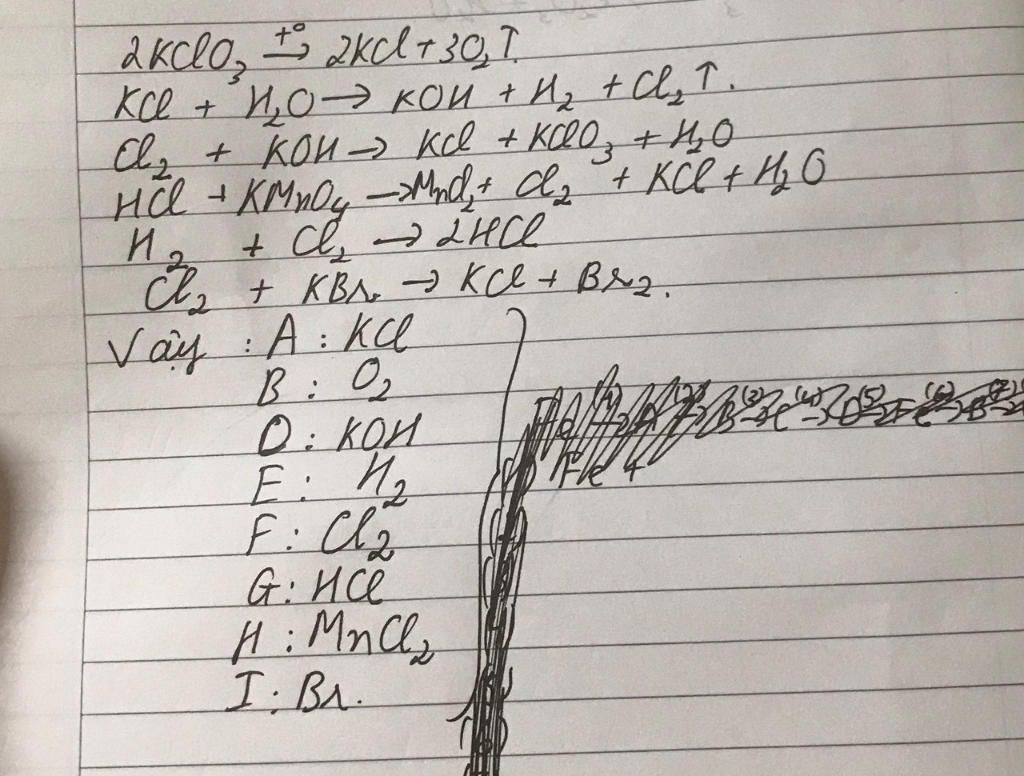 2KClO₃ →(t°) 2KCl + 3O₂↑.
KCl + H₂O → KOH + H₂ + Cl₂↑.
Cl₂ + KOH → KCl + KClO₃ + H₂O
HCl + KMnO₄ → MnCl₂ + Cl₂ + KCl + H₂O
H₂ + Cl₂ → 2HCl
Cl₂ + KBr → KCl + Br₂.
Vậy : A : KCl
B : O₂
D : KOH
E : H₂
F : Cl₂
G : HCl
H : MnCl₂
I : Br.